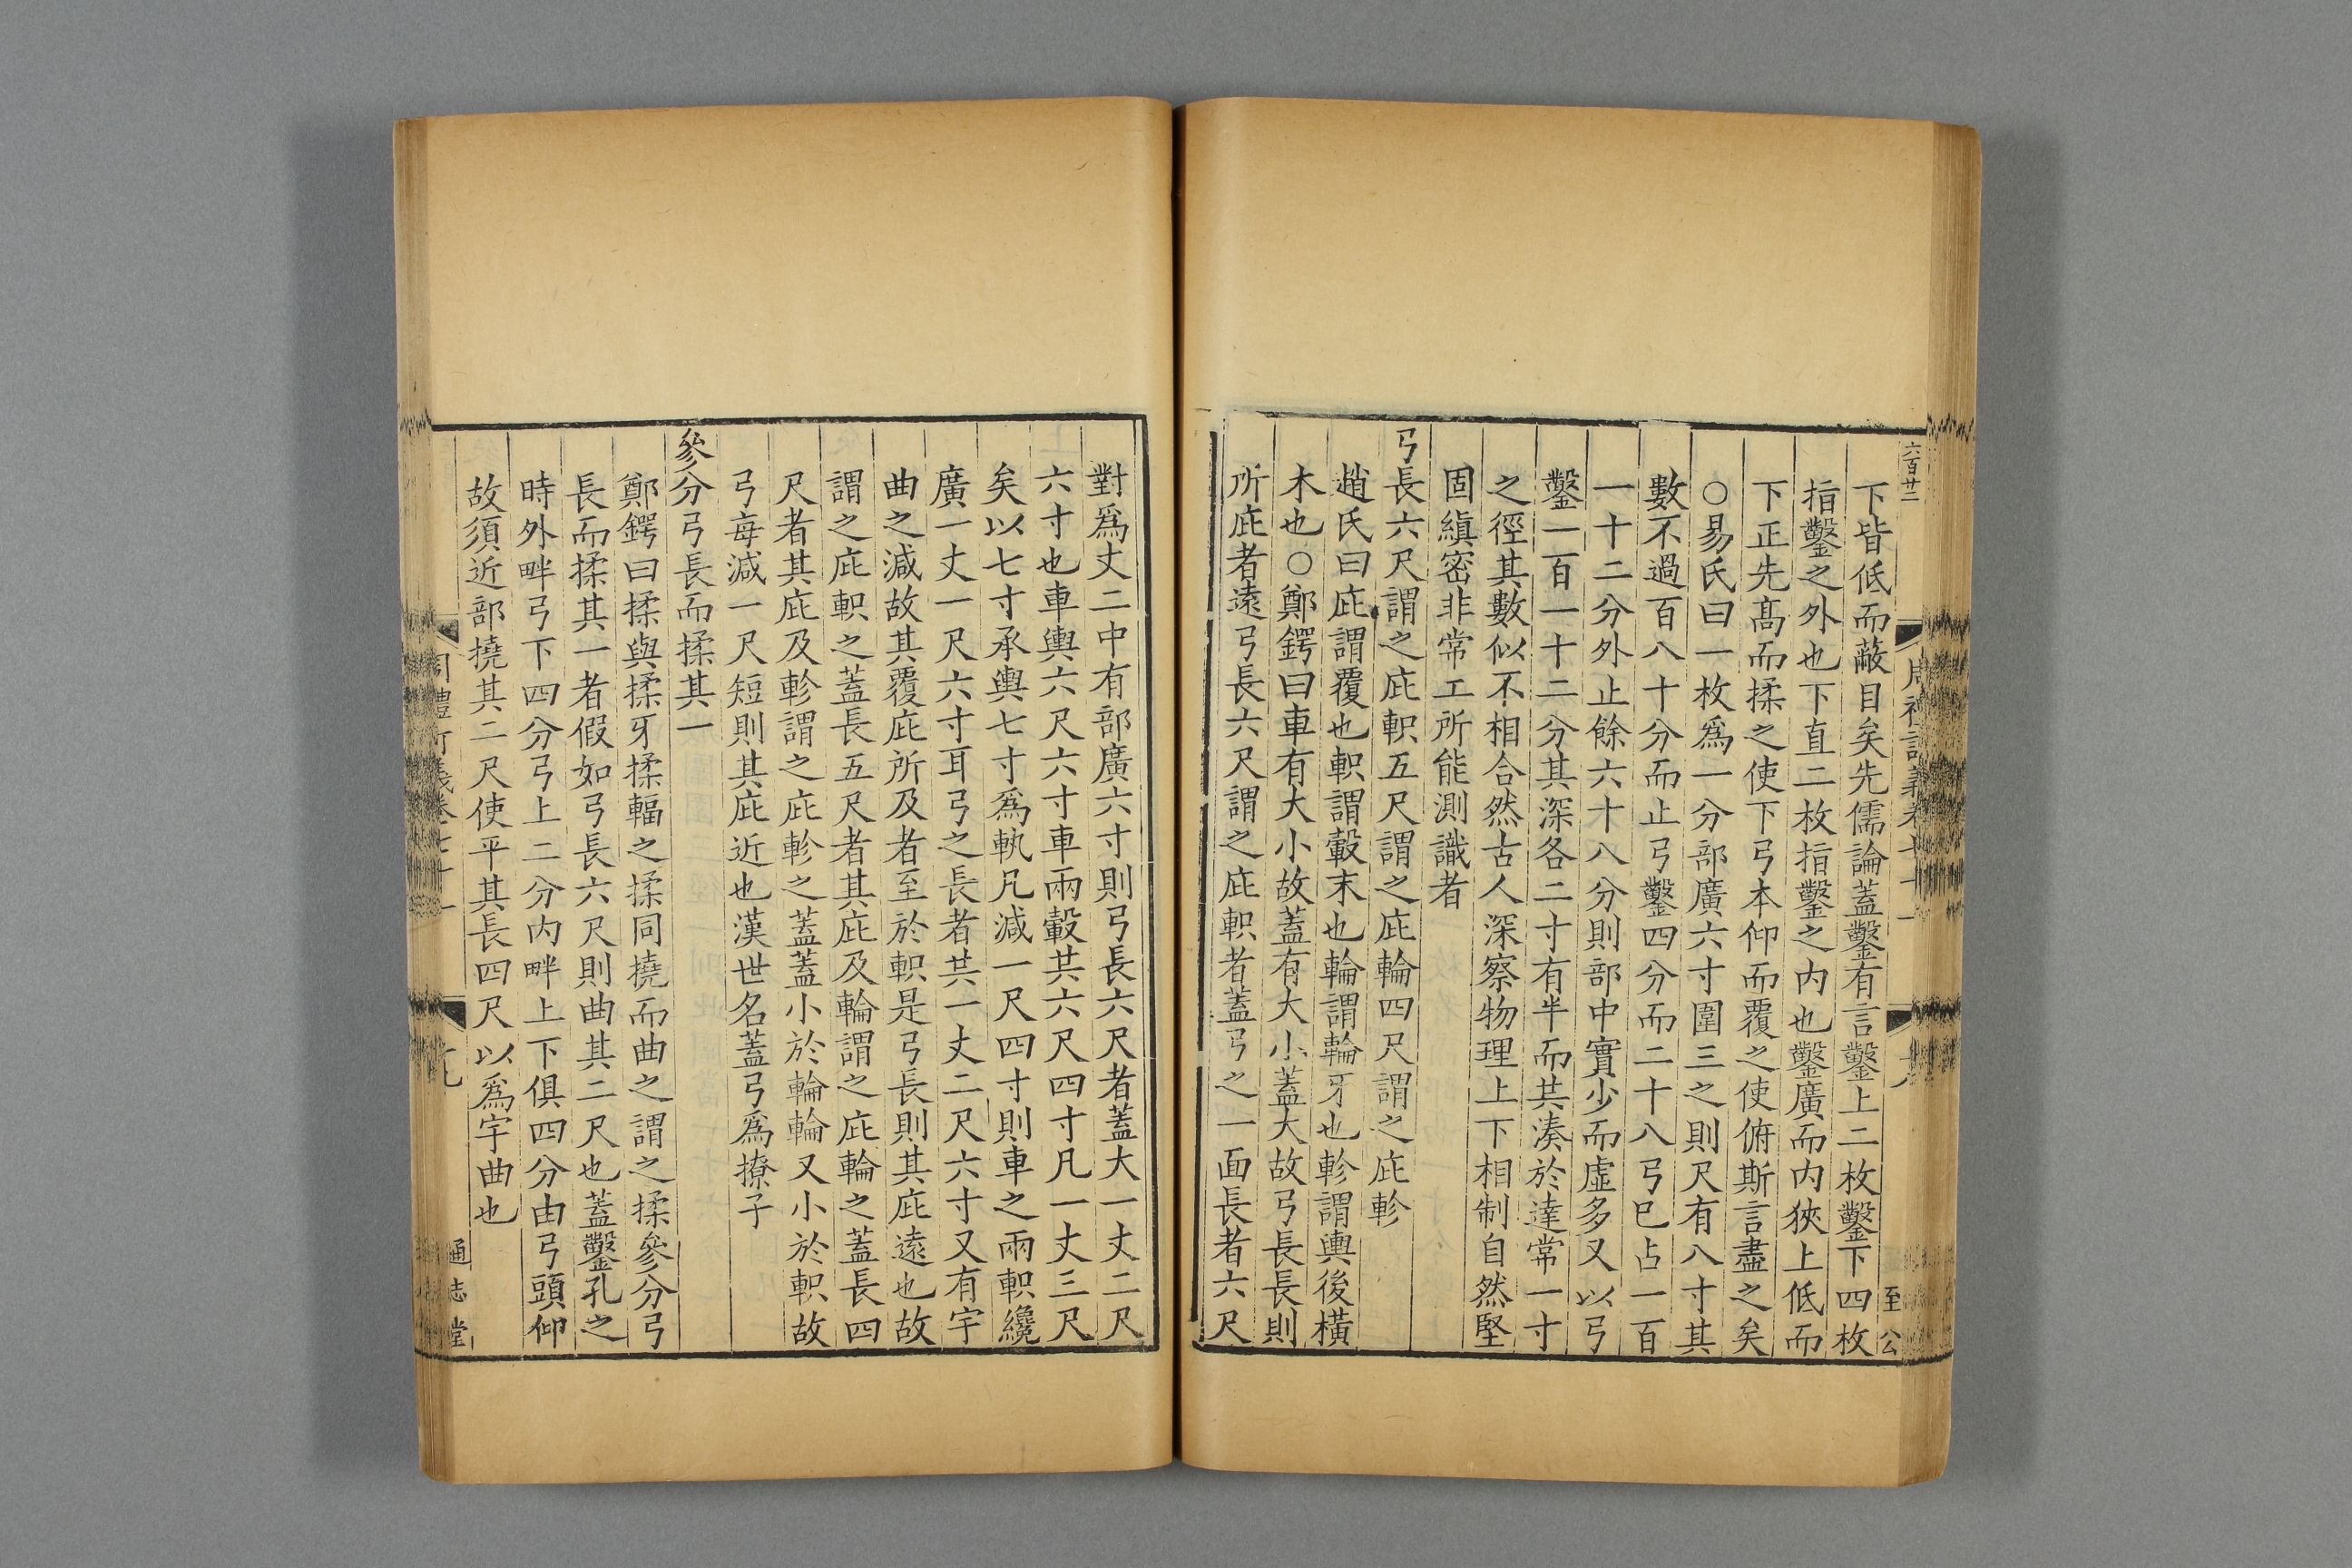 六百廿二
下皆低而蔽目矣先儒論蓋鑿有言鑿上二枚鑿下四枚
指鑿之外也下直二枚指鑿之内也鑿廣而内狹上低而
下正先髙而揉之使下弓本仰而覆之使俯斯言盡之矣
○易氏曰一枚爲一分部廣六寸圍三之則尺有八寸其
數不過百八十分而止弓鑿四分而二十八弓巳占一百
一十二分外止餘六十八分則部中實少而虛多又以弓
鑿一百一十二分其深各二寸有半而其湊於達常一寸
之徑其數似不相合然古人深察物理上下相制自然堅
固縝密非常工所能測識者
弓長六尺謂之庇軹五尺謂之庇輪四尺謂之庇軫
趙氏曰庇謂覆也軹謂轂末也輪謂輪牙也軫謂輿後橫
木也○鄭鍔曰車有大小故蓋有大小蓋大故弓長長則
所庇者遠弓長六尺謂之庇軹者蓋弓之一面長者六尺
至公
對爲丈二中有部廣六寸則弓長六尺者蓋大一丈二尺
六寸也車輿六尺六寸車兩轂共六尺四寸凡一丈三尺
矣以七寸承輿七寸爲軌凡減一尺四寸則車之兩軹纔
廣一丈一尺六寸耳弓之長者共一丈二尺六寸又有宇
曲之減故其覆庇所及者至於軹是弓長則其庇遠也故
謂之庇軹之蓋長五尺者其庇及輪謂之庇輪之蓋長四
尺者其庇及軫謂之庇軫之蓋蓋小於輪輪又小於軹故
弓每減一尺短則其庇近也漢世名蓋弓爲橑子
參分弓長而揉其一
鄭鍔曰揉與揉牙揉輻之揉同撓而曲之謂之揉參分弓
長而揉其一者假如弓長六尺則曲其二尺也蓋鑿孔之
時外畔弓下四分弓上二分内畔上下俱四分由弓頭仰
故須近部撓其二尺使平其長四尺以爲宇曲也
通志堂